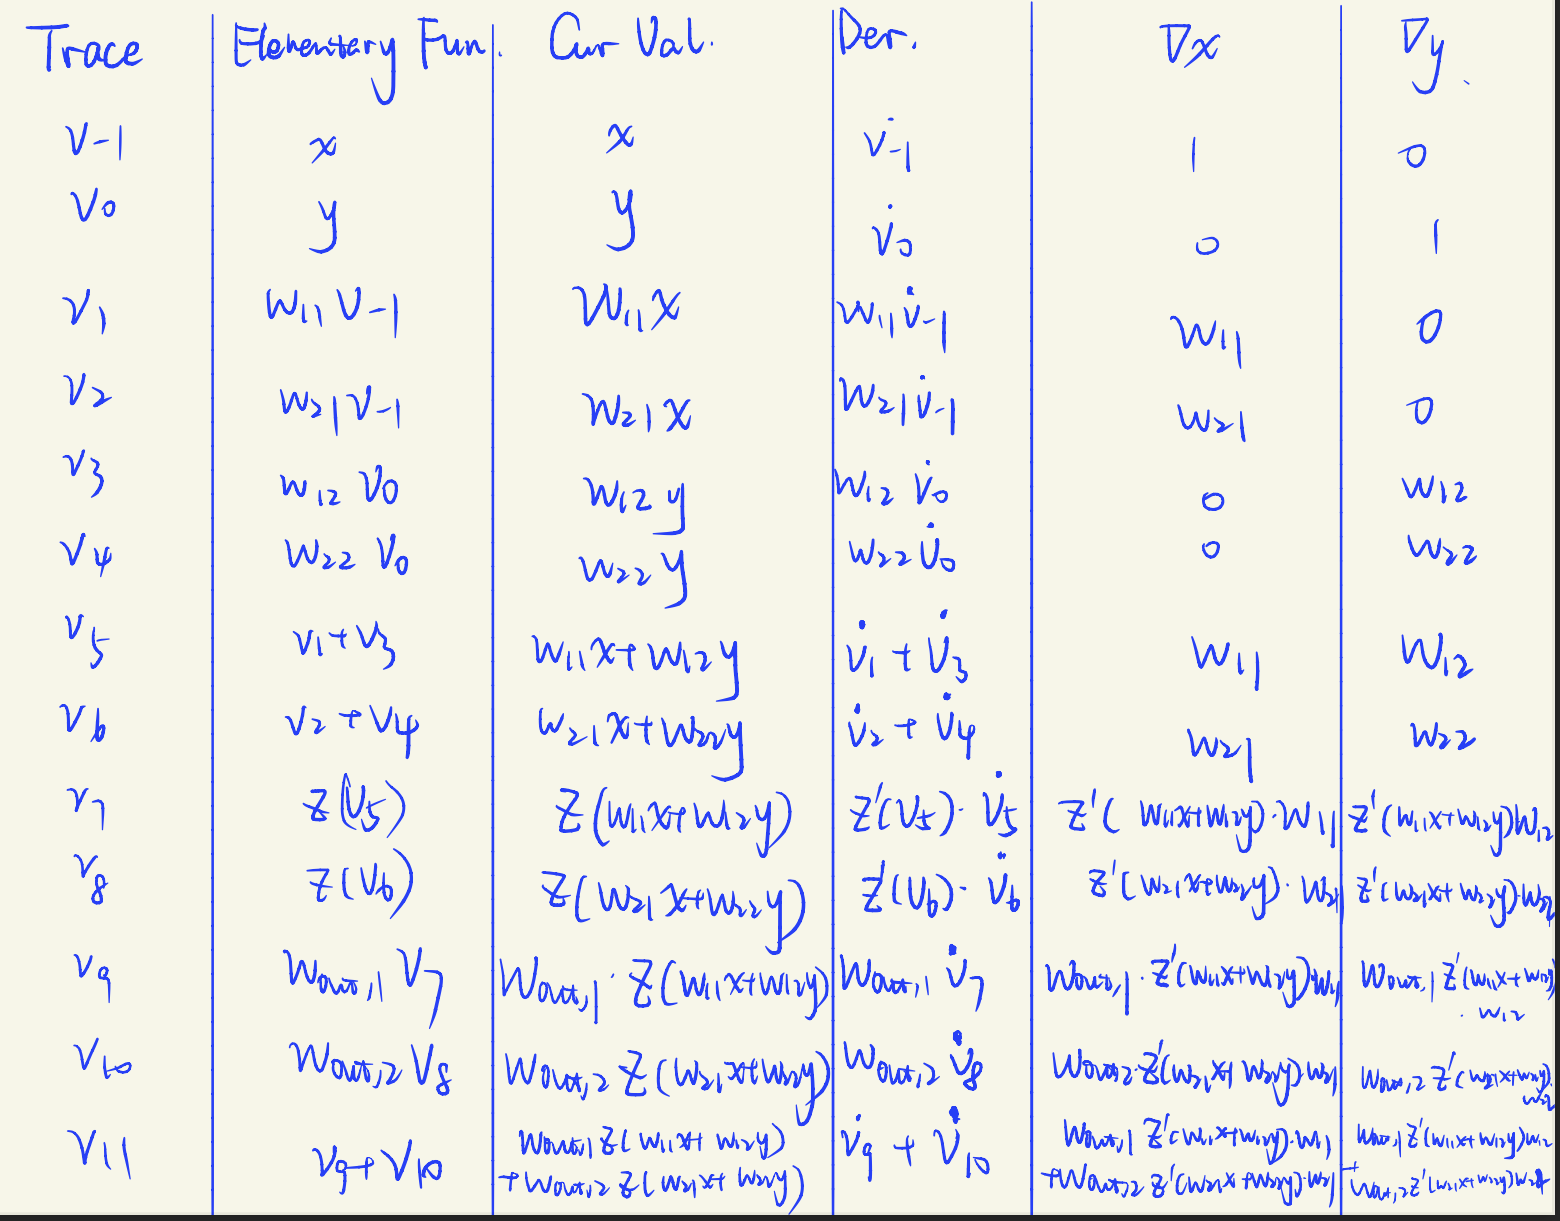 Trace Elementary Fun. Cur Val. Der. ∇x ∇y.
v-1 x x v̇-1 1 0
v0 y y v̇0 0 1
v1 w11 v-1 w11 x w11 v̇-1 w11 0
v2 w21 v-1 w21 x w21 v̇-1 w21 0
v3 w12 v0 w12 y w12 v̇0 0 w12
v4 w22 v0 w22 y w22 v̇0 0 w22
v5 v1+v3 w11x+w12y v̇1 + v̇3 w11 w12
v6 v2 + v4 w21x+w22y v̇2 + v̇4 w21 w22
v7 z(v5) z(w11x+w12y) z'(v5)· v̇5 z'(w11x+w12y)·w11 z'(w11x+w12y)w12
v8 z(v6) z(w21x+w22y) z'(v6)· v̇6 z'(w21x+w22y)·w21 z'(w21x+w22y)·w22
v9 wout,1 v7 wout,1· z(w11x+w12y) wout,1 v̇7 wout,1·z'(w11x+w12y)·w11 wout,1 z'(w11x+w12y)
·w12
v10 wout,2 v8 wout,2 z(w21x+w22y) wout,2 v̇8 wout,2·z'(w21x+w22y)·w21 wout,2 z'(w21x+w22y)·
w22
v11 v9+v10 wout,1 z(w11x+w12y) v̇9 + v̇10 wout,1 z'(w11x+w12y)·w11 wout,1 z'(w11x+w12y)w12
+wout,2 z(w21x+w22y) +wout,2 z'(w21x+w22y)·w21 +wout,2 z'(w21x+w22y)w22